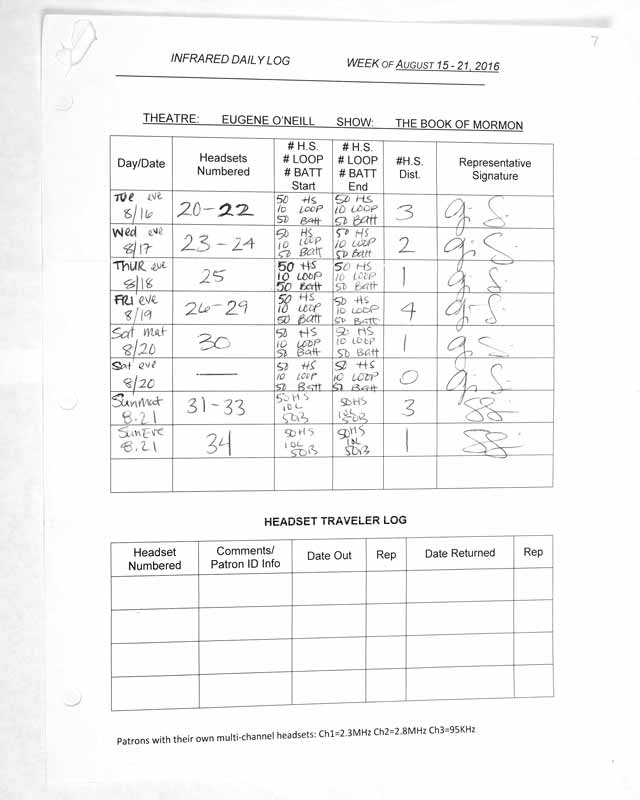 7
INFRARED DAILY LOG WEEK OF AUGUST 15 - 21, 2016
THEATRE: EUGENE O'NEILL SHOW: THE BOOK OF MORMON
Day/Date
Headsets
Numbered
# H.S.
# LOOP
# BATT
Start
# H.S.
# LOOP
# BATT
End
#H.S.
Dist.
Representative
Signature
Tue eve
8/16
20-22
50 HS
10 LOOP
50 Batt
50 HS
10 LOOP
50 Batt
3
Wed eve
8/17
23-24
50 HS
10 LOOP
50 Batt
50 HS
10 LOOP
50 Batt
2
THUR eve
8/18
25
50 HS
10 LOOP
50 Batt
50 HS
10 LOOP
50 Batt
1
FRI eve
8/19
26-29
50 HS
10 LOOP
50 Batt
50 HS
10 LOOP
50 Batt
4
Sat mat
8/20
30
50 HS
10 LOOP
50 Batt
50 HS
10 LOOP
50 Batt
1
Sat eve
8/20
—
50 HS
10 LOOP
50 Batt
50 HS
10 LOOP
50 Batt
0
SunMat
8.21
31-33
50HS
10L
50B
50HS
10L
50B
3
SunEve
8.21
34
50HS
10L
50B
50HS
10L
50B
1
HEADSET TRAVELER LOG
Headset
Numbered
Comments/
Patron ID Info
Date Out
Rep
Date Returned
Rep
Patrons with their own multi-channel headsets: Ch1=2.3MHz Ch2=2.8MHz Ch3=95KHz